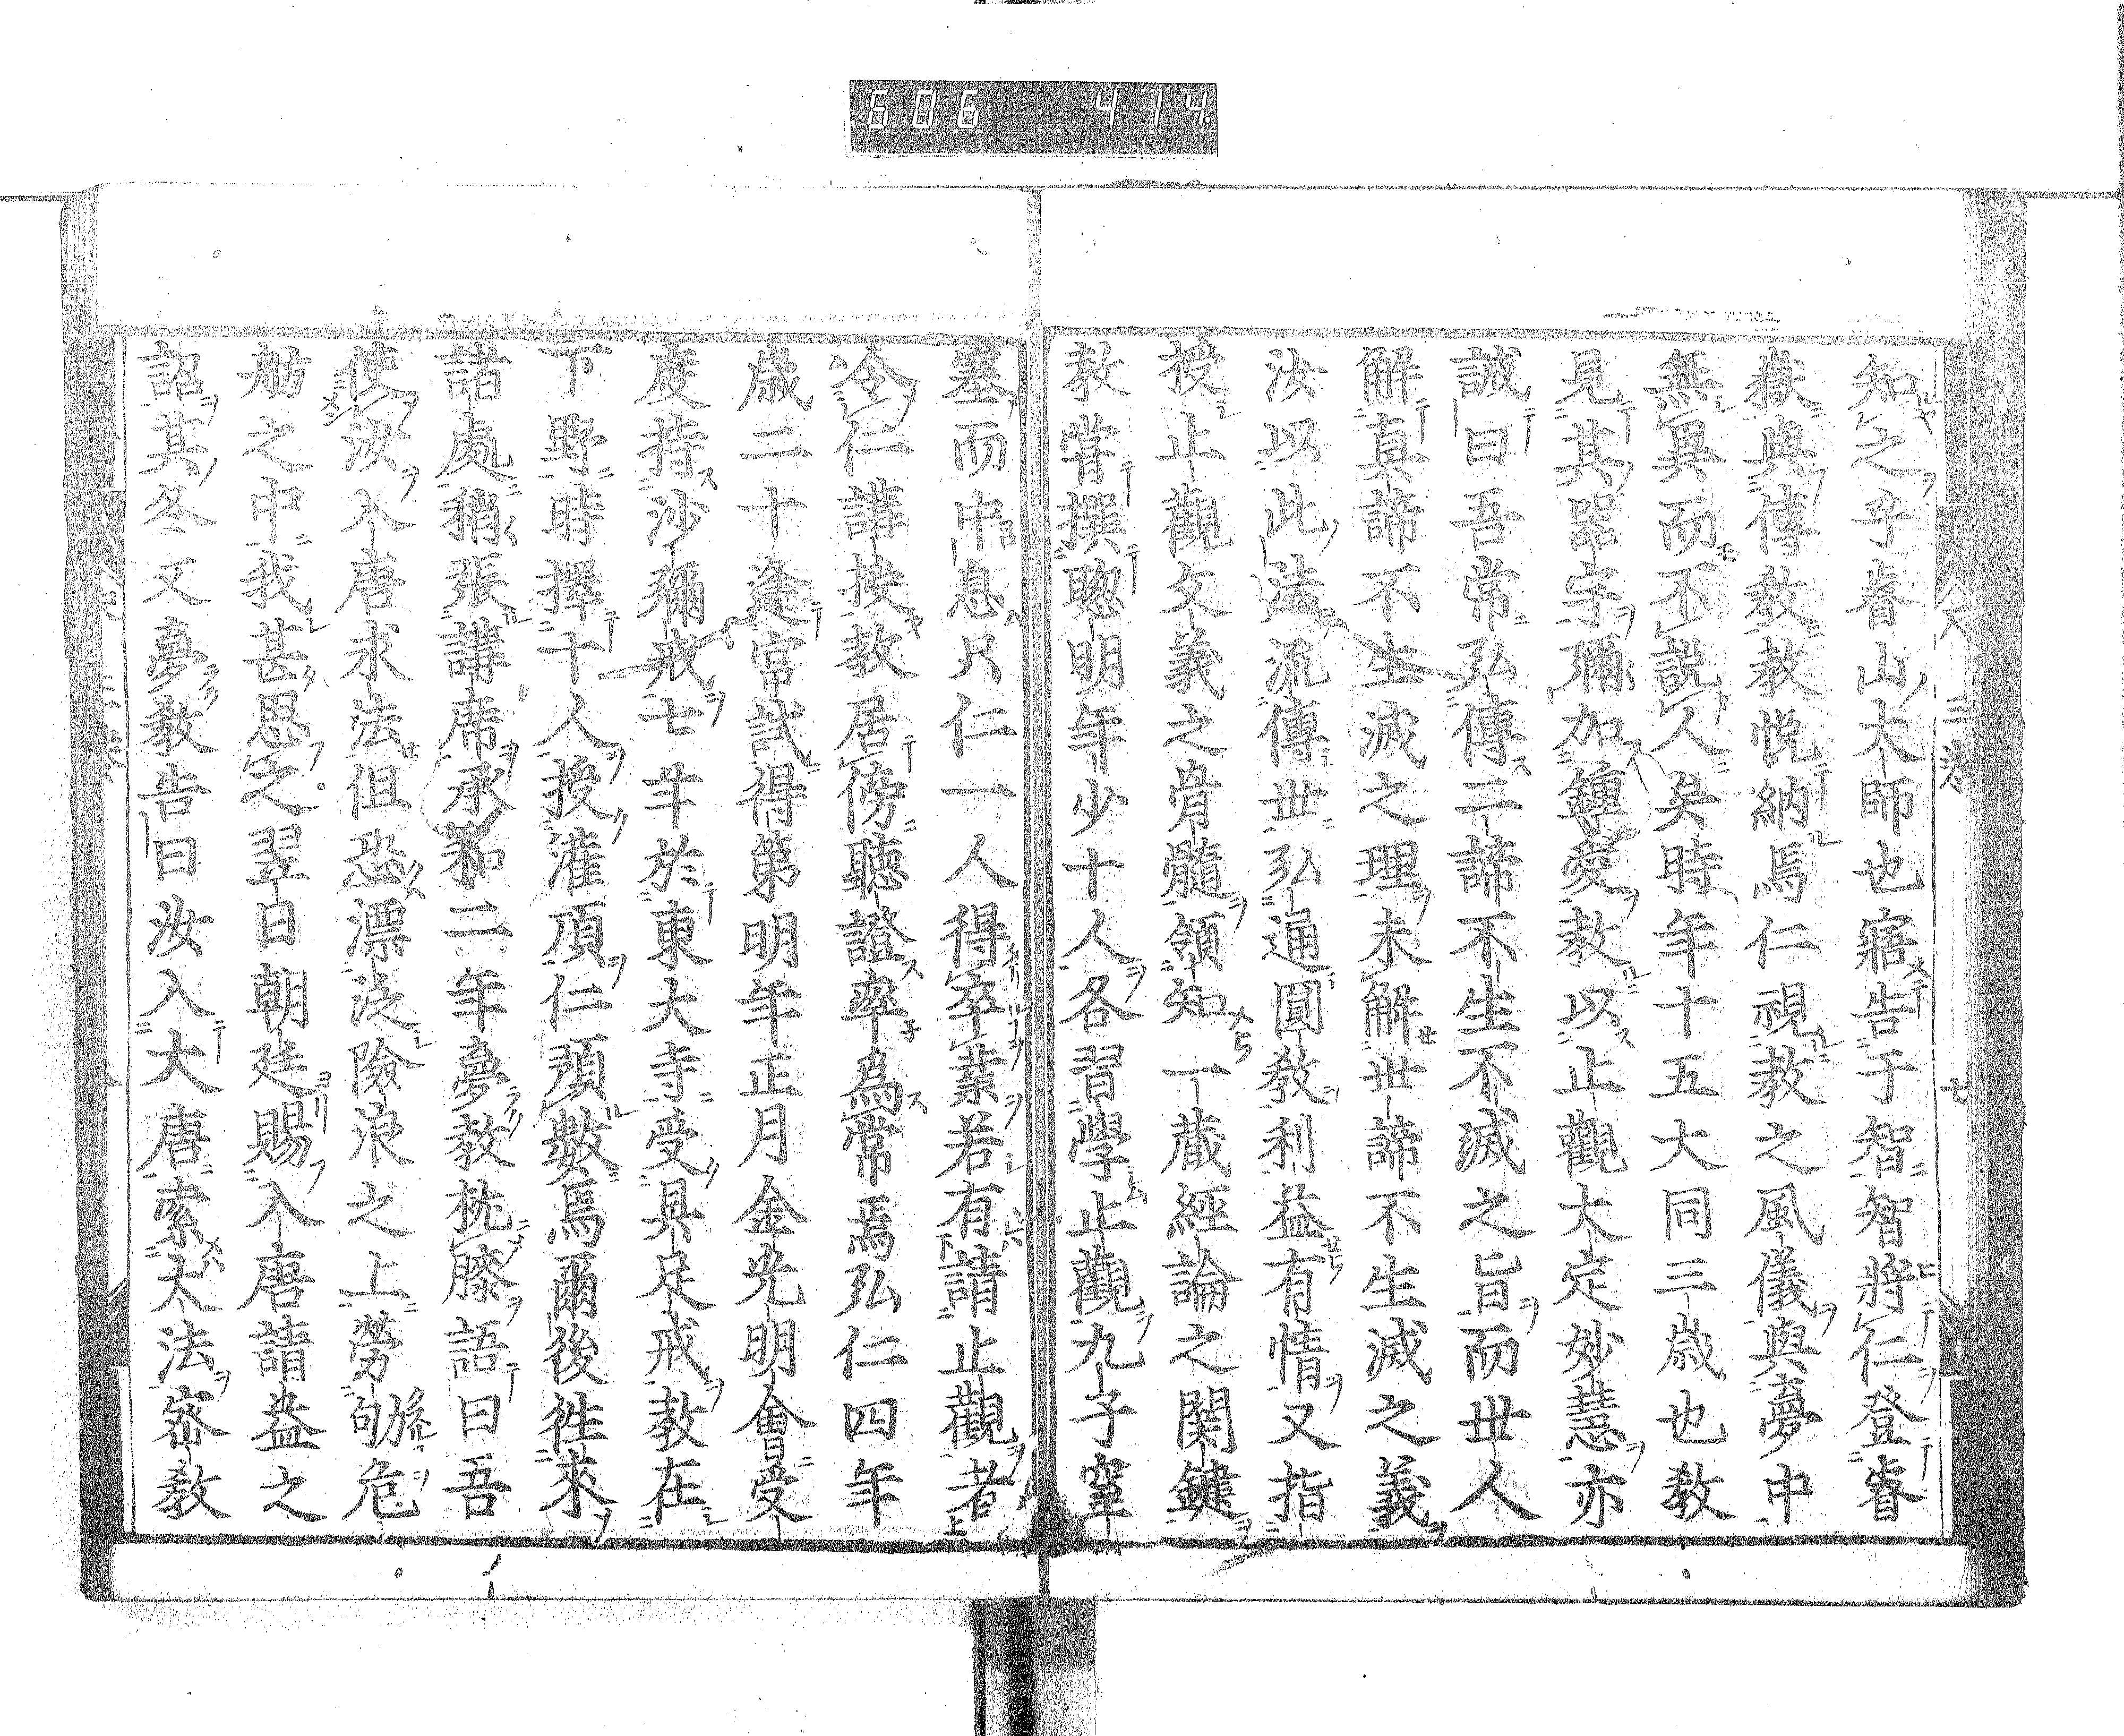 606 414
知之乎睿山大師也寤告于智智將仁登睿
嶽與傳教教悦納焉仁視教之風儀與夢中
無異而不説人矣時年十五大同三歳也教
見其器宇彌加鍾愛教以止觀大定妙慧亦
誡曰吾常弘傳二諦不生不滅之旨而世人
解真諦不生滅之理未解世諦不生滅之義
汝以此法流傳世弘通圓教利益有情又指
授止觀文義之骨髓領知一蔵經論之関鍵
教甞撰聦明年少十人各習學止觀九子窒
塞而中息只仁一人得卒業若有請止觀者
令仁講按教居傍聴證率為常焉弘仁四年
歳二十逢官試得第明年正月金光明會受
度持沙彌戒七年於東大寺受具足戒教在
下野時擇十人授灌頂仁預數焉爾後徃來
諸處稍張講席承和二年夢教枕膝語曰吾
使汝入唐求法但恐漂泛險浪之上勞劬危
舫之中我甚思之翌日朝廷賜入唐請益之
詔其冬又夢教告曰汝入大唐索大法密教
三巻
七